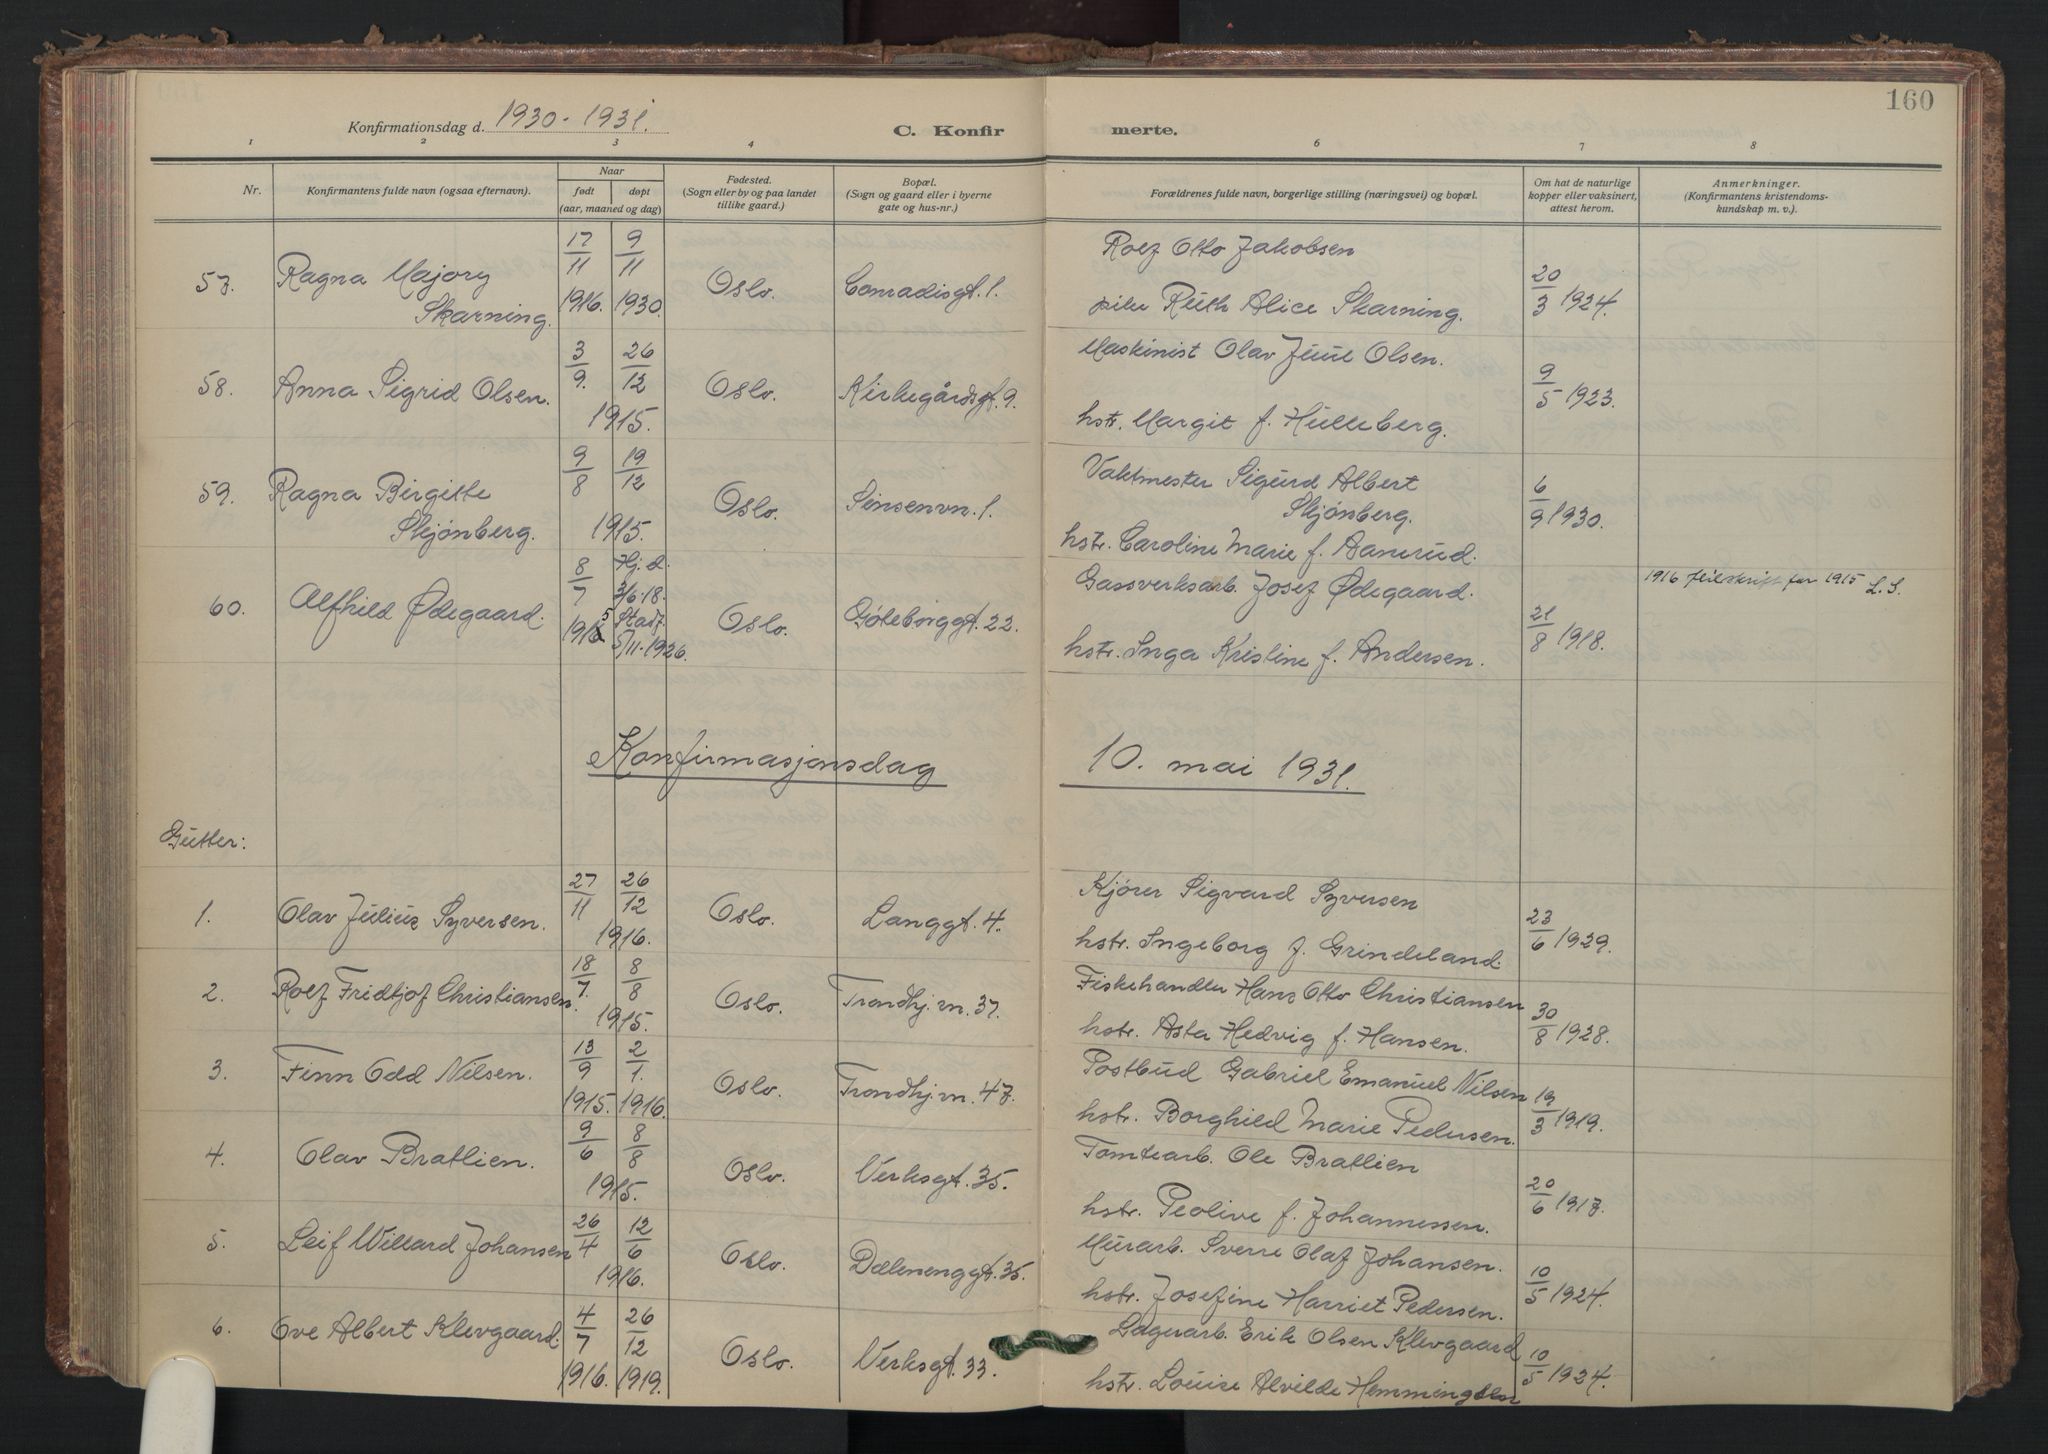 160
Konfirmationsdag d. 1930 - 1931. C. Konfirmerte.
1 2 3 4 6 7 8
Nr. Konfirmantens fulde navn (ogsaa efternavn). Naar født døpt (aar, maaned og dag) Fødested. (Sogn eller by og paa landet tillike gaard.) Bopæl. (Sogn og gaard eller i byerne gate og hus-nr.) Forældrenes fulde navn, borgerlige stilling (næringsvei) og bopæl. Om hat de naturlige kopper eller vaksinert, attest herom. Anmerkninger. (Konfirmantens kristendomskundskap m. v.).
57. Ragna Majory Skarning. 17/11 1916. 9/11 1930. Oslo. Conradisgt. 1. Rolf Otto Jakobsen
pike Ruth Alice Skarning. 20/3 1924.
58. Anna Sigrid Olsen. 3/9. 26/12 1915. Oslo. Kirkegårdsgt. 9. Maskinist Olav Juul Olsen.
hstr. Margit f. Hulleberg. 9/5 1923.
59. Ragna Birgitte Skjønberg. 9/8 19/12 1915. Oslo. Sinsenvn. 1. Vaktmester Sigurd Albert Skjønberg.
hstr. Caroline Marie f. Aamrud. 6/9 1930.
60. Alfhild Ødegaard. 8/7 1915 Hj. d. 3/6-18. Stadf. 5/11-1926. Oslo. Göteborggt. 22. Gassverksarb. Josef Ødegaard.
hstr. Inga Kristine f. Andersen. 21/8 1918. 1916 feilskrift for 1915 L.S.
Konfirmasjonsdag 10. mai 1931.
Gutter:
1. Olav Julius Syversen. 27/11 26/12 1916. Oslo. Langgt. 4. Kjører Sigvard Syversen
hstr. Ingeborg f. Grindeland. 23/6 1929.
2. Rolf Fridtjof Christiansen. 18/7. 8/8 1915. Oslo. Trondhj.vn. 37. Fiskehandler Hans Otto Christiansen
hstr. Asta Hedvig f. Hansen. 30/8 1928.
3. Finn Odd Nilsen. 13/9 1915. 2/1. 1916. Oslo. Trondhj.vn. 47. Postbud Gabriel Emanuel Nilsen
hstr. Borghild Marie Pedersen. 19/3 1919.
4. Olav Bratlien. 9/6 8/8 1915. Oslo. Verksgt. 35. Tomtearb. Ole Bratlien
hstr. Peolive f. Johannessen. 20/6 1917.
5. Leif Willard Johansen 26/4 12/6 1916. Oslo. Dælenenggt. 35. Murarb. Sverre Olaf Johansen.
hstr. Josefine Harriet Pedersen. 10/5 1924.
6. Ove Albert Klevgaard. 4/7 1916. 26/12 1919. Oslo. Verksgt. 33. Lagerarb. Erik Olsen Klevgaard
hstr. Louise Alvilde Hemmingsen 10/5 1924.